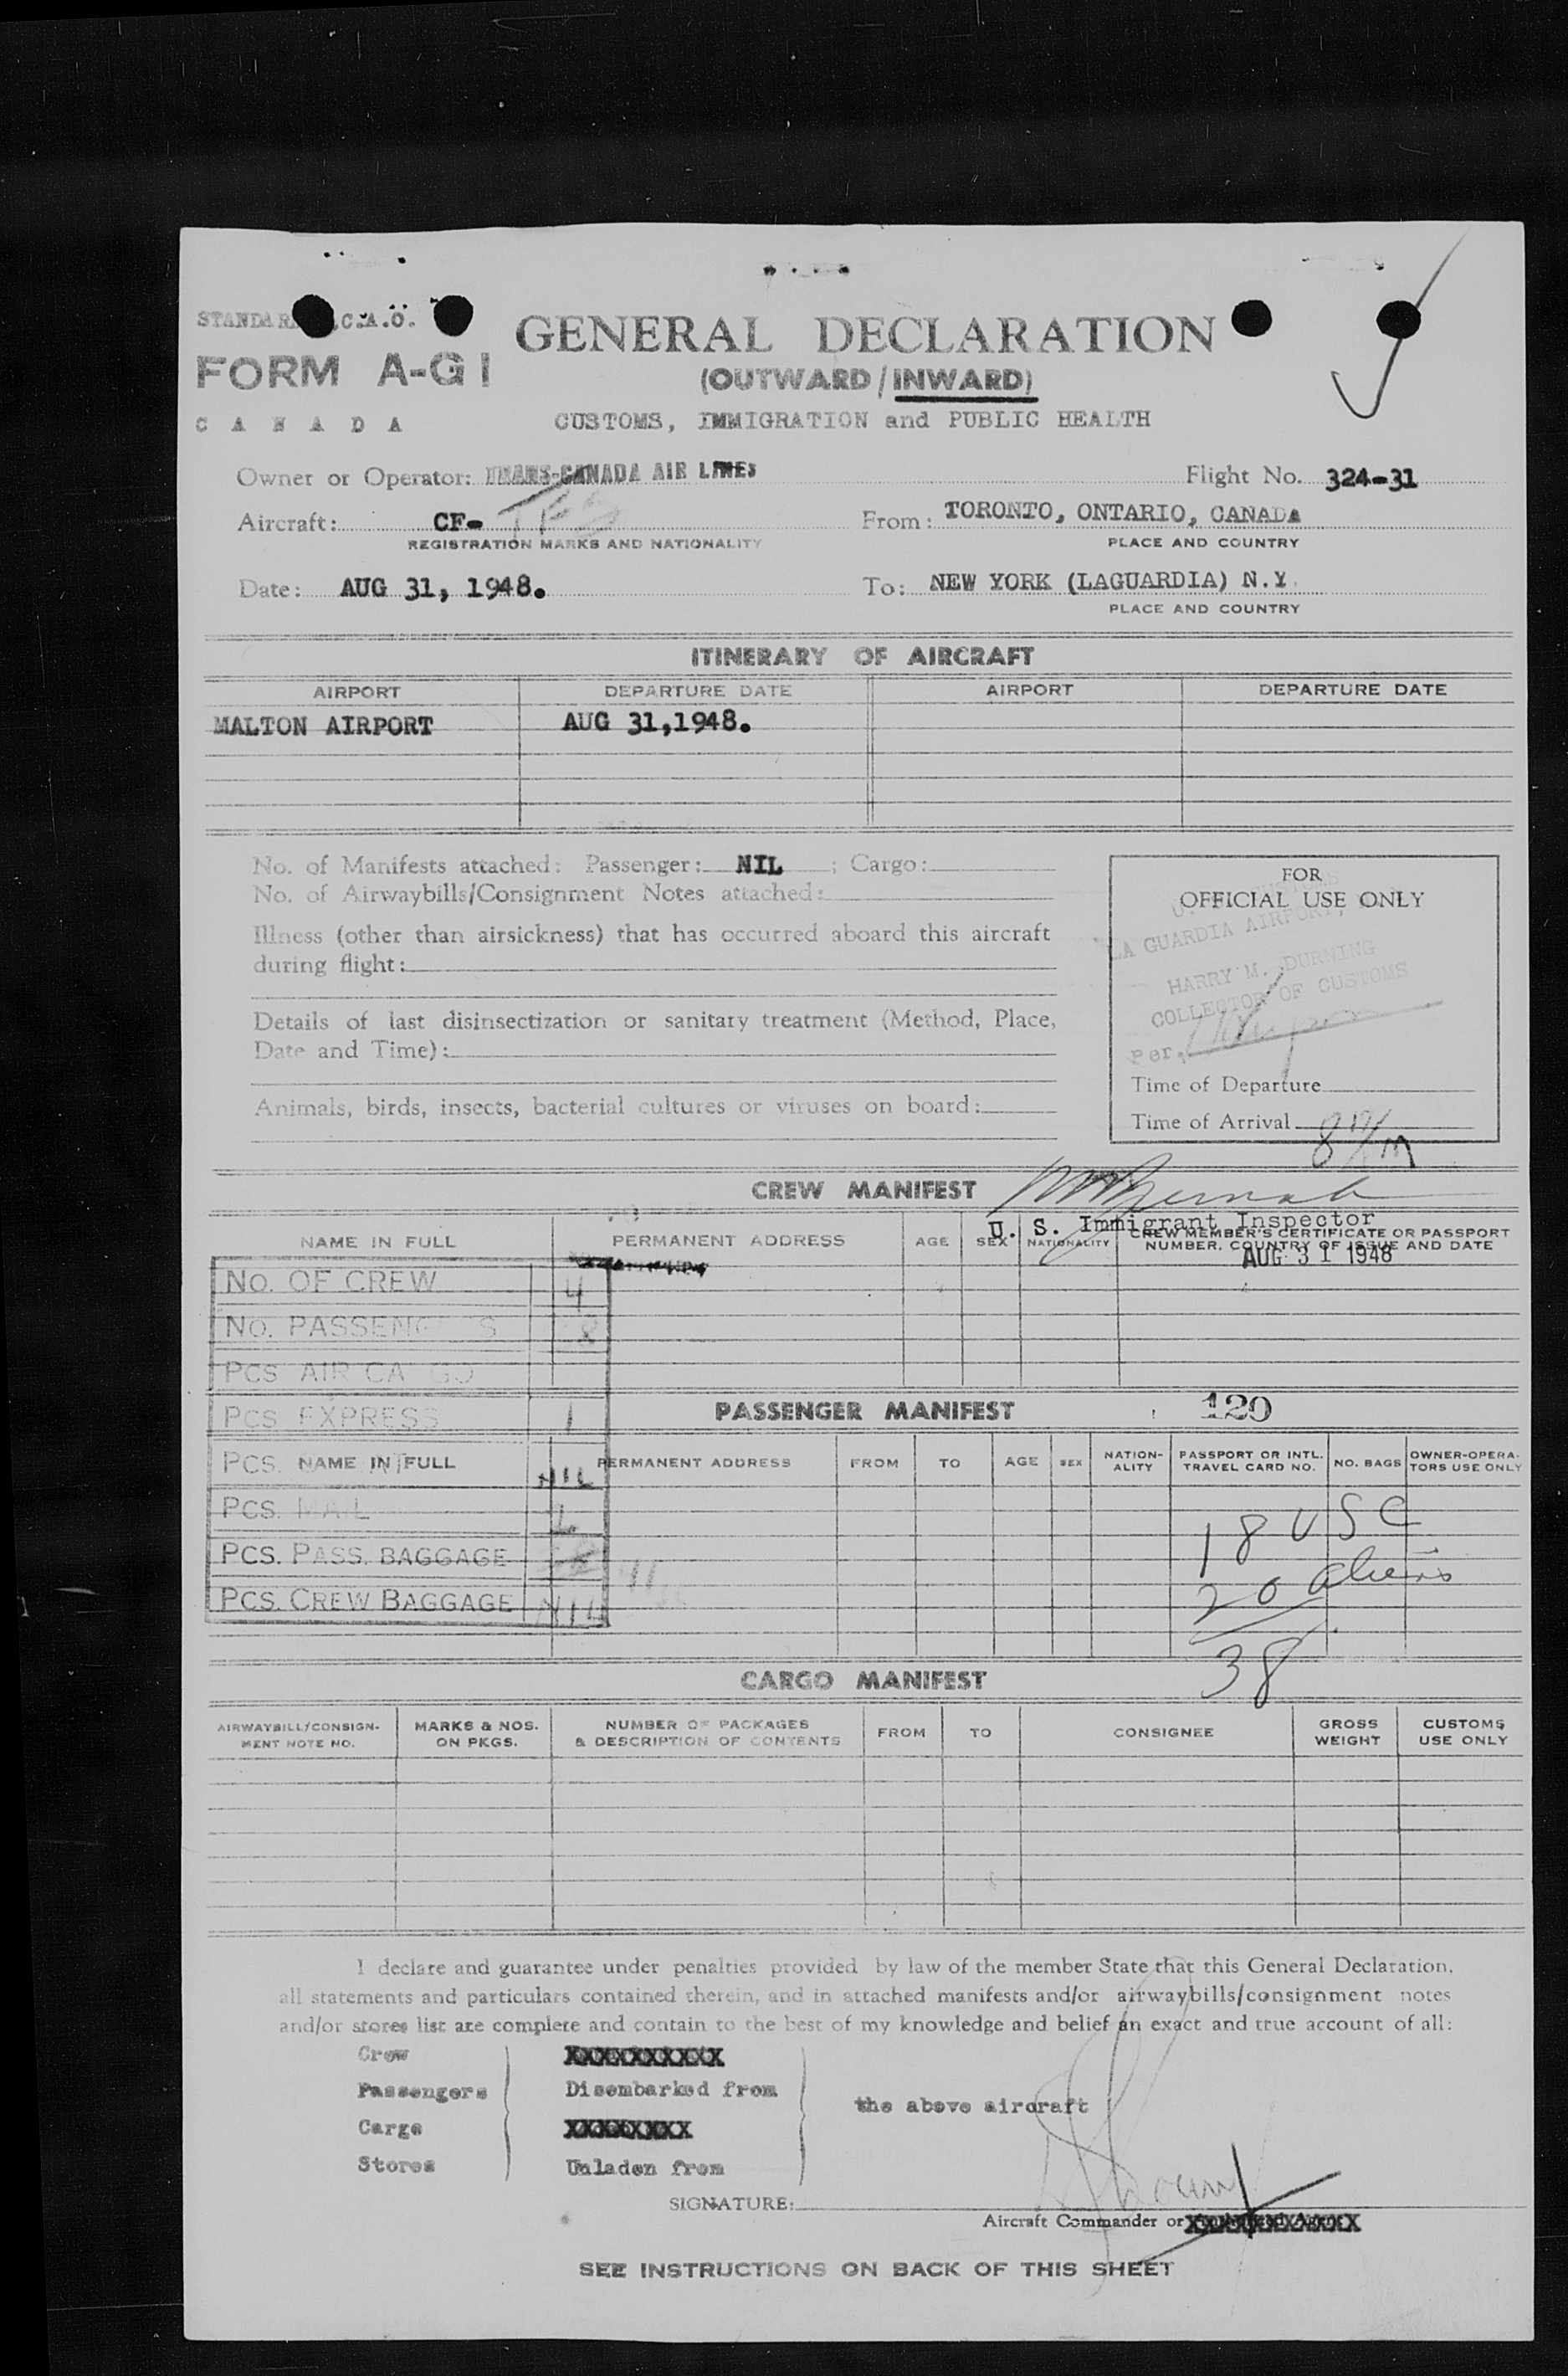 STANDARD I.C.A.O.
FORM A-G1
CANADA
GENERAL DECLARATION
(OUTWARD/INWARD)
CUSTOMS, IMMIGRATION and PUBLIC HEALTH
Owner or Operator: TRANS-CANADA AIR LINES
Flight No. 324-31
Aircraft: CF-
REGISTRATION MARKS AND NATIONALITY
From: TORONTO, ONTARIO, CANADA
PLACE AND COUNTRY
Date: AUG 31, 1948.
To: NEW YORK (LAGUARDIA) N.Y.
PLACE AND COUNTRY
ITINERARY OF AIRCRAFT
AIRPORT DEPARTURE DATE AIRPORT DEPARTURE DATE
MALTON AIRPORT AUG 31,1948.
No. of Manifests attached: Passenger: NIL ; Cargo:
No. of Airwaybills/Consignment Notes attached:
Illness (other than airsickness) that has occurred aboard this aircraft
during flight:
Details of last disinsectization or sanitary treatment (Method, Place,
Date and Time):
Animals, birds, insects, bacterial cultures or viruses on board:
FOR
OFFICIAL USE ONLY
LA GUARDIA AIRPORT,
HARRY M. DURNING
COLLECTOR OF CUSTOMS
Per.
Time of Departure
Time of Arrival
CREW MANIFEST
U. S. Immigrant Inspector
AUG 31 1948
NAME IN FULL PERMANENT ADDRESS AGE SEX NATIONALITY CREW MEMBER'S CERTIFICATE OR PASSPORT
NUMBER, COUNTRY OF ISSUE AND DATE
No. OF CREW 4
No. PASSENGERS
PCS AIR CARGO
PCS EXPRESS 1
PASSENGER MANIFEST
120
PCS.
NAME IN FULL PERMANENT ADDRESS FROM TO AGE SEX NATION-
ALITY PASSPORT OR INTL.
TRAVEL CARD NO. NO. BAGS OWNER-OPERA-
TORS USE ONLY
NIL
PCS. MAIL
PCS. PASS. BAGGAGE
PCS. CREW BAGGAGE NIL
18 USC
20 Aliens
38
CARGO MANIFEST
AIRWAYBILL/CONSIGN-
MENT NOTE NO. MARKS & NOS.
ON PKGS. NUMBER OF PACKAGES
& DESCRIPTION OF CONTENTS FROM TO CONSIGNEE GROSS
WEIGHT CUSTOMS
USE ONLY
I declare and guarantee under penalties provided by law of the member State that this General Declaration,
all statements and particulars contained therein, and in attached manifests and/or airwaybills/consignment notes
and/or stores list are complete and contain to the best of my knowledge and belief an exact and true account of all:
Crew XXXXXXXXXX
Passengers Disembarked from
the above aircraft
Cargo XXXXXXXX
Stores Unladen from
SIGNATURE:
Aircraft Commander or
SEE INSTRUCTIONS ON BACK OF THIS SHEET